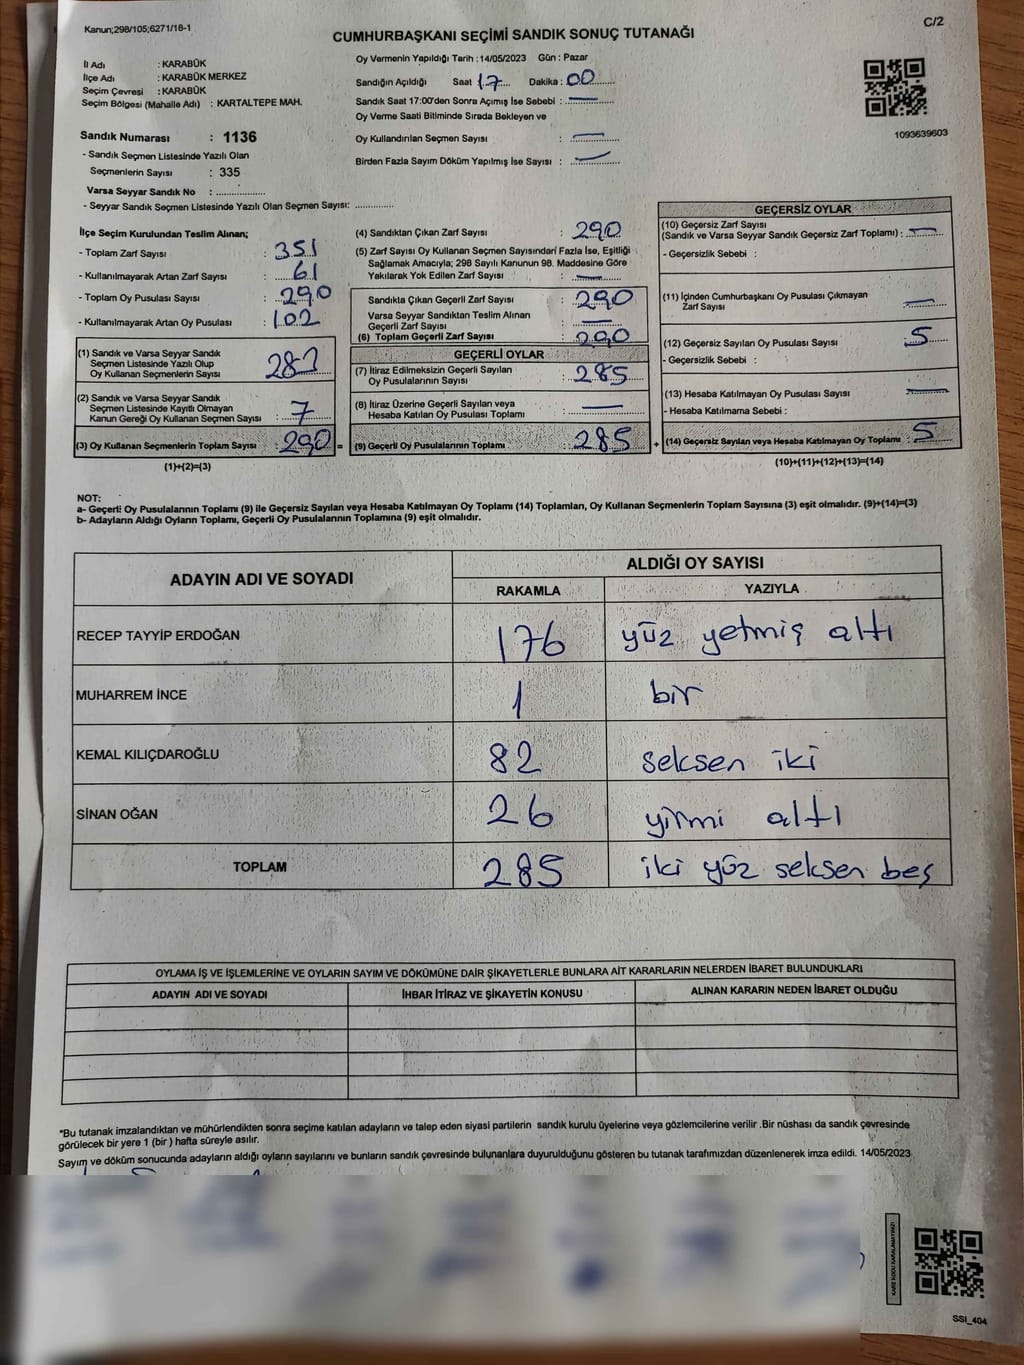 Kanun;298/105;6271/18-1
C/2
CUMHURBAŞKANI SEÇİMİ SANDIK SONUÇ TUTANAĞI
İl Adı : KARABÜK
İlçe Adı : KARABÜK MERKEZ
Seçim Çevresi : KARABÜK
Seçim Bölgesi (Mahalle Adı) : KARTALTEPE MAH.
Sandık Numarası : 1136
- Sandık Seçmen Listesinde Yazılı Olan
Seçmenlerin Sayısı : 335
Varsa Seyyar Sandık No : ..................
- Seyyar Sandık Seçmen Listesinde Yazılı Olan Seçmen Sayısı: ..............
Oy Vermenin Yapıldığı Tarih : 14/05/2023 Gün : Pazar
Sandığın Açıldığı Saat 17 Dakika : 00
Sandık Saat 17:00'den Sonra Açımış İse Sebebi : —
Oy Verme Saati Bitiminde Sırada Bekleyen ve
Oy Kullandırılan Seçmen Sayısı : —
Birden Fazla Sayım Döküm Yapılmış İse Sayısı : —
1093639603
İlçe Seçim Kurulundan Teslim Alınan;
- Toplam Zarf Sayısı : 351
- Kullanılmayarak Artan Zarf Sayısı : 61
- Toplam Oy Pusulası Sayısı : 290
- Kullanılmayarak Artan Oy Pusulası : 102
(1) Sandık ve Varsa Seyyar Sandık
Seçmen Listesinde Yazılı Olup
Oy Kullanan Seçmenlerin Sayısı : 283
(2) Sandık ve Varsa Seyyar Sandık
Seçmen Listesinde Kayıtlı Olmayan
Kanun Gereği Oy Kullanan Seçmen Sayısı : 7
(3) Oy Kullanan Seçmenlerin Toplam Sayısı : 290 =
(1)+(2)=(3)
(4) Sandıktan Çıkan Zarf Sayısı : 290
(5) Zarf Sayısı Oy Kullanan Seçmen Sayısından Fazla İse, Eşitliği
Sağlamak Amacıyla; 298 Sayılı Kanunun 98. Maddesine Göre
Yakılarak Yok Edilen Zarf Sayısı : —
Sandıkta Çıkan Geçerli Zarf Sayısı : 290
Varsa Seyyar Sandıktan Teslim Alınan
Geçerli Zarf Sayısı : —
(6) Toplam Geçerli Zarf Sayısı : 290
GEÇERLİ OYLAR
(7) İtiraz Edilmeksizin Geçerli Sayılan
Oy Pusulalarının Sayısı : 285
(8) İtiraz Üzerine Geçerli Sayılan veya
Hesaba Katılan Oy Pusulası Toplamı : —
(9) Geçerli Oy Pusulalarının Toplamı : 285 +
GEÇERSİZ OYLAR
(10) Geçersiz Zarf Sayısı
(Sandık ve Varsa Seyyar Sandık Geçersiz Zarf Toplamı) : —
- Geçersizlik Sebebi :
(11) İçinden Cumhurbaşkanı Oy Pusulası Çıkmayan
Zarf Sayısı : —
(12) Geçersiz Sayılan Oy Pusulası Sayısı : 5
- Geçersizlik Sebebi :
(13) Hesaba Katılmayan Oy Pusulası Sayısı : —
- Hesaba Katılmama Sebebi :
(14) Geçersiz Sayılan veya Hesaba Katılmayan Oy Toplamı : 5
(10)+(11)+(12)+(13)=(14)
NOT:
a- Geçerli Oy Pusulalarının Toplamı (9) ile Geçersiz Sayılan veya Hesaba Katılmayan Oy Toplamı (14) Toplamları, Oy Kullanan Seçmenlerin Toplam Sayısına (3) eşit olmalıdır. (9)+(14)=(3)
b- Adayların Aldığı Oyların Toplamı, Geçerli Oy Pusulalarının Toplamına (9) eşit olmalıdır.
ADAYIN ADI VE SOYADI
ALDIĞI OY SAYISI
RAKAMLA YAZIYLA
RECEP TAYYİP ERDOĞAN 176 yüz yetmiş altı
MUHARREM İNCE 1 bir
KEMAL KILIÇDAROĞLU 82 seksen iki
SİNAN OĞAN 26 yirmi altı
TOPLAM 285 iki yüz seksen beş
OYLAMA İŞ VE İŞLEMLERİNE VE OYLARIN SAYIM VE DÖKÜMÜNE DAİR ŞİKAYETLERLE BUNLARA AİT KARARLARIN NELERDEN İBARET BULUNDUKLARI
ADAYIN ADI VE SOYADI İHBAR İTİRAZ VE ŞİKAYETİN KONUSU ALINAN KARARIN NEDEN İBARET OLDUĞU
*Bu tutanak imzalandıktan ve mühürlendikten sonra seçime katılan adayların ve talep eden siyasi partilerin sandık kurulu üyelerine veya gözlemcilerine verilir .Bir nüshası da sandık çevresinde
görülecek bir yere 1 (bir ) hafta süreyle asılır.
Sayım ve döküm sonucunda adayların aldığı oyların sayılarını ve bunların sandık çevresinde bulunanlara duyurulduğunu gösteren bu tutanak tarafımızdan düzenlenerek imza edildi. 14/05/2023
KARE KODU KARALAMAYINIZ!
SSI_404